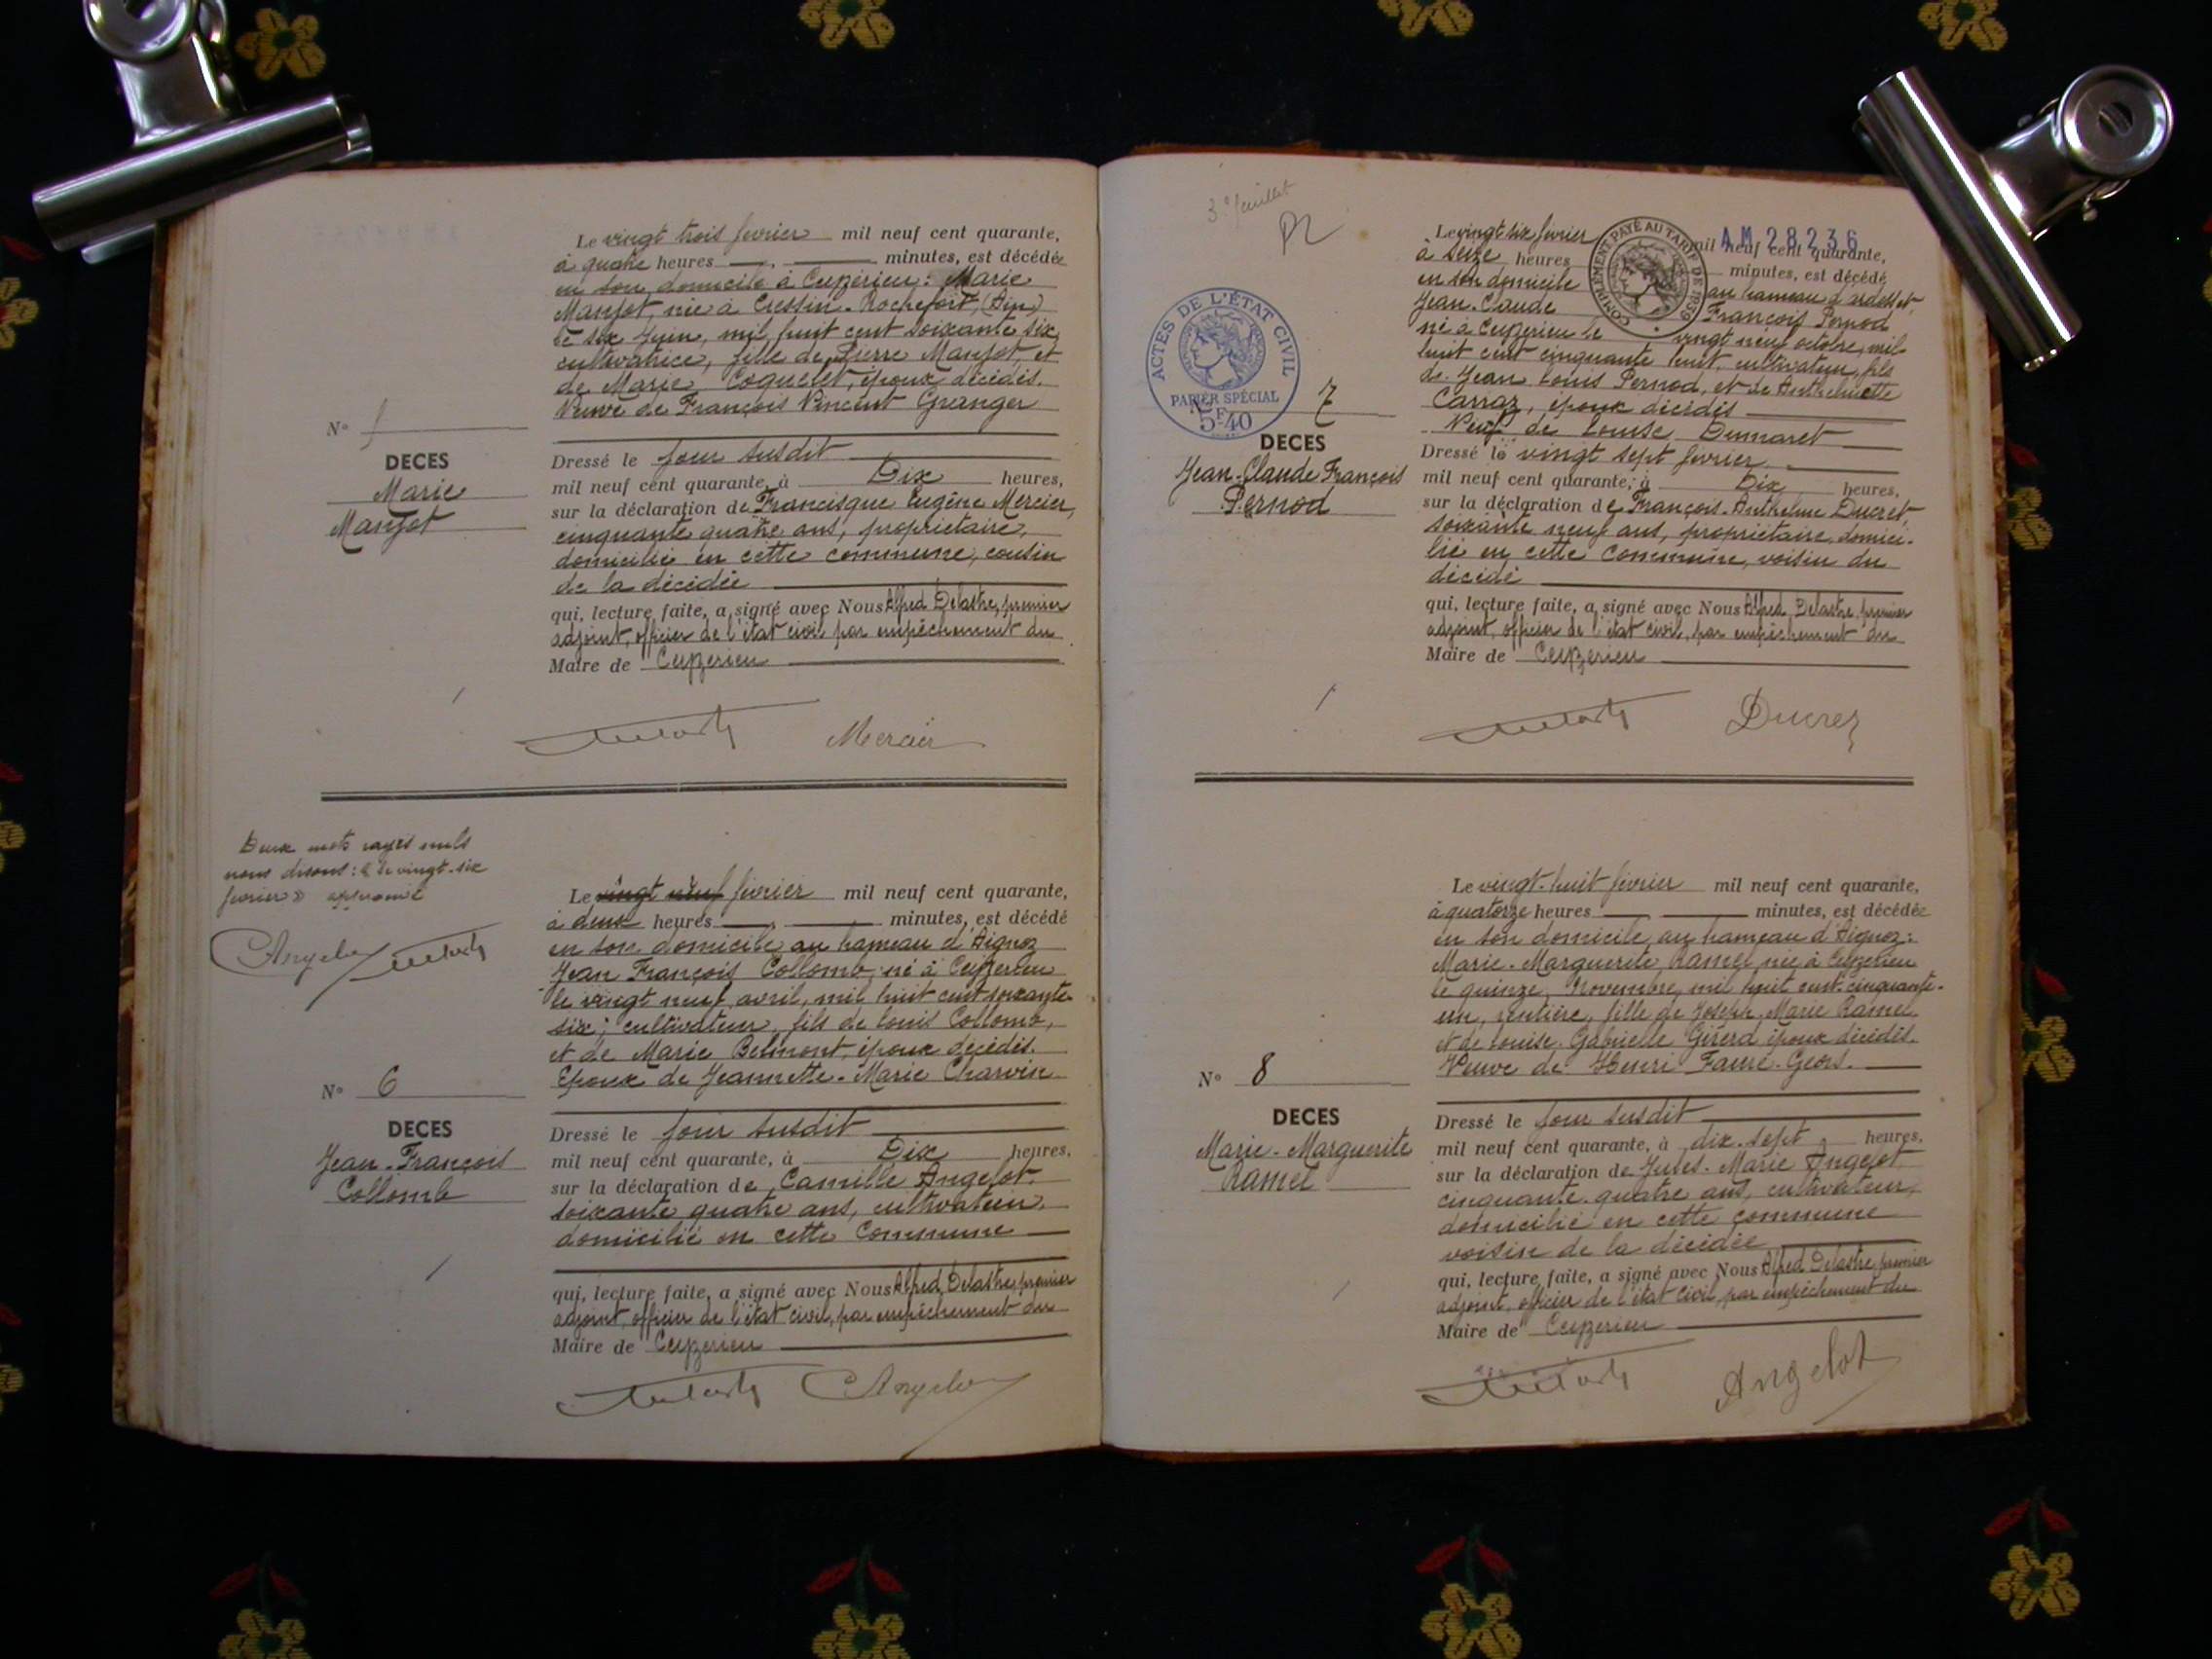 Le vingt trois fevrier mil neuf cent quarante,
à quatre heures minutes, est décédée
en son domicile à Ceyzerieu : Marie
née à Cressin-Rochefort, (Ain)
le six Juin, mil huit cent soixante six,
cultivatrice, fille de Pierre et
de Marie Coquelet, époux décédés.
Veuve de François Vincent Granger
N°
DECES
Marie
Dressé le jour susdit
mil neuf cent quarante, à Dix heures,
sur la déclaration de Francisque Eugène Mercier,
cinquante quatre ans, propriétaire,
domicilié en cette commune, cousin
de la décédée
qui, lecture faite, a signé avec Nous Alfred Delastre, premier
adjoint, officier de l'état civil par empêchement du
Maire de Ceyzerieu
Mercier
Deux mots rayés nuls
nous disons : « le vingt-six
fevrier » approuvé
CAngelot
Le vingt neuf fevrier mil neuf cent quarante,
à deux heures minutes, est décédé
en son domicile au hameau d'Aignoz
Jean François Collomb, né à Ceyzerieu
le vingt neuf avril, mil huit cent soixante-
six ; cultivateur, fils de Louis Collomb,
et de Marie Belmont, époux décédés.
Epoux de Jeannette-Marie Charvin
N° 6
DECES
Jean-François
Collomb
Dressé le jour susdit
mil neuf cent quarante, à Dix heures,
sur la déclaration de Camille Angelot.
soixante quatre ans, cultivateur,
domicilié en cette Commune
qui, lecture faite, a signé avec Nous Alfred Delastre, premier
adjoint, officier de l'état civil, par empêchement du
Maire de Ceyzerieu
CAngelot
3e feuillet
ACTES DE L'ÉTAT CIVIL
PAPIER SPÉCIAL
5F40
COMPLEMENT PAYÉ AU TARIF DE 1939
AM 28236
Le vingt six fevrier mil neuf cent quarante,
à seize heures minutes, est décédé
en son domicile au hameau d'
Jean-Claude François Pernod
né à Ceyzerieu le vingt neuf octobre, mil
huit cent cinquante huit, cultivateur, fils
de Jean Louis Pernod, et de Anthelmette
Carraz, époux décédés
Veuf de Louise Dumaret
N° 7
DECES
Jean-Claude François
Pernod
Dressé le vingt sept fevrier
mil neuf cent quarante, à Dix heures,
sur la déclaration de François-Anthelme Ducret,
soixante neuf ans, propriétaire, domici-
lié en cette Commune, voisin du
décédé
qui, lecture faite, a signé avec Nous Alfred Delastre, premier
adjoint, officier de l'état civil, par empêchement du
Maire de Ceyzerieu
Ducret
Le vingt-huit fevrier mil neuf cent quarante,
à quatorze heures minutes, est décédée
en son domicile, au hameau d'Aignoz :
Marie-Marguerite Ramel née à Ceyzerieu
le quinze Novembre, mil huit cent cinquante-
un, rentière, fille de Joseph Marie Ramel
et de Louise Gabrielle Girerd époux décédés.
Veuve de Henri Faure-Geors.
N° 8
DECES
Marie-Marguerite
Ramel
Dressé le jour susdit
mil neuf cent quarante, à dix-sept heures,
sur la déclaration de Jules-Marie Angelot
cinquante quatre ans, cultivateur,
domicilié en cette commune
voisin de la décédée
qui, lecture faite, a signé avec Nous Alfred Delastre, premier
adjoint, officier de l'état civil, par empêchement du
Maire de Ceyzerieu
Angelot